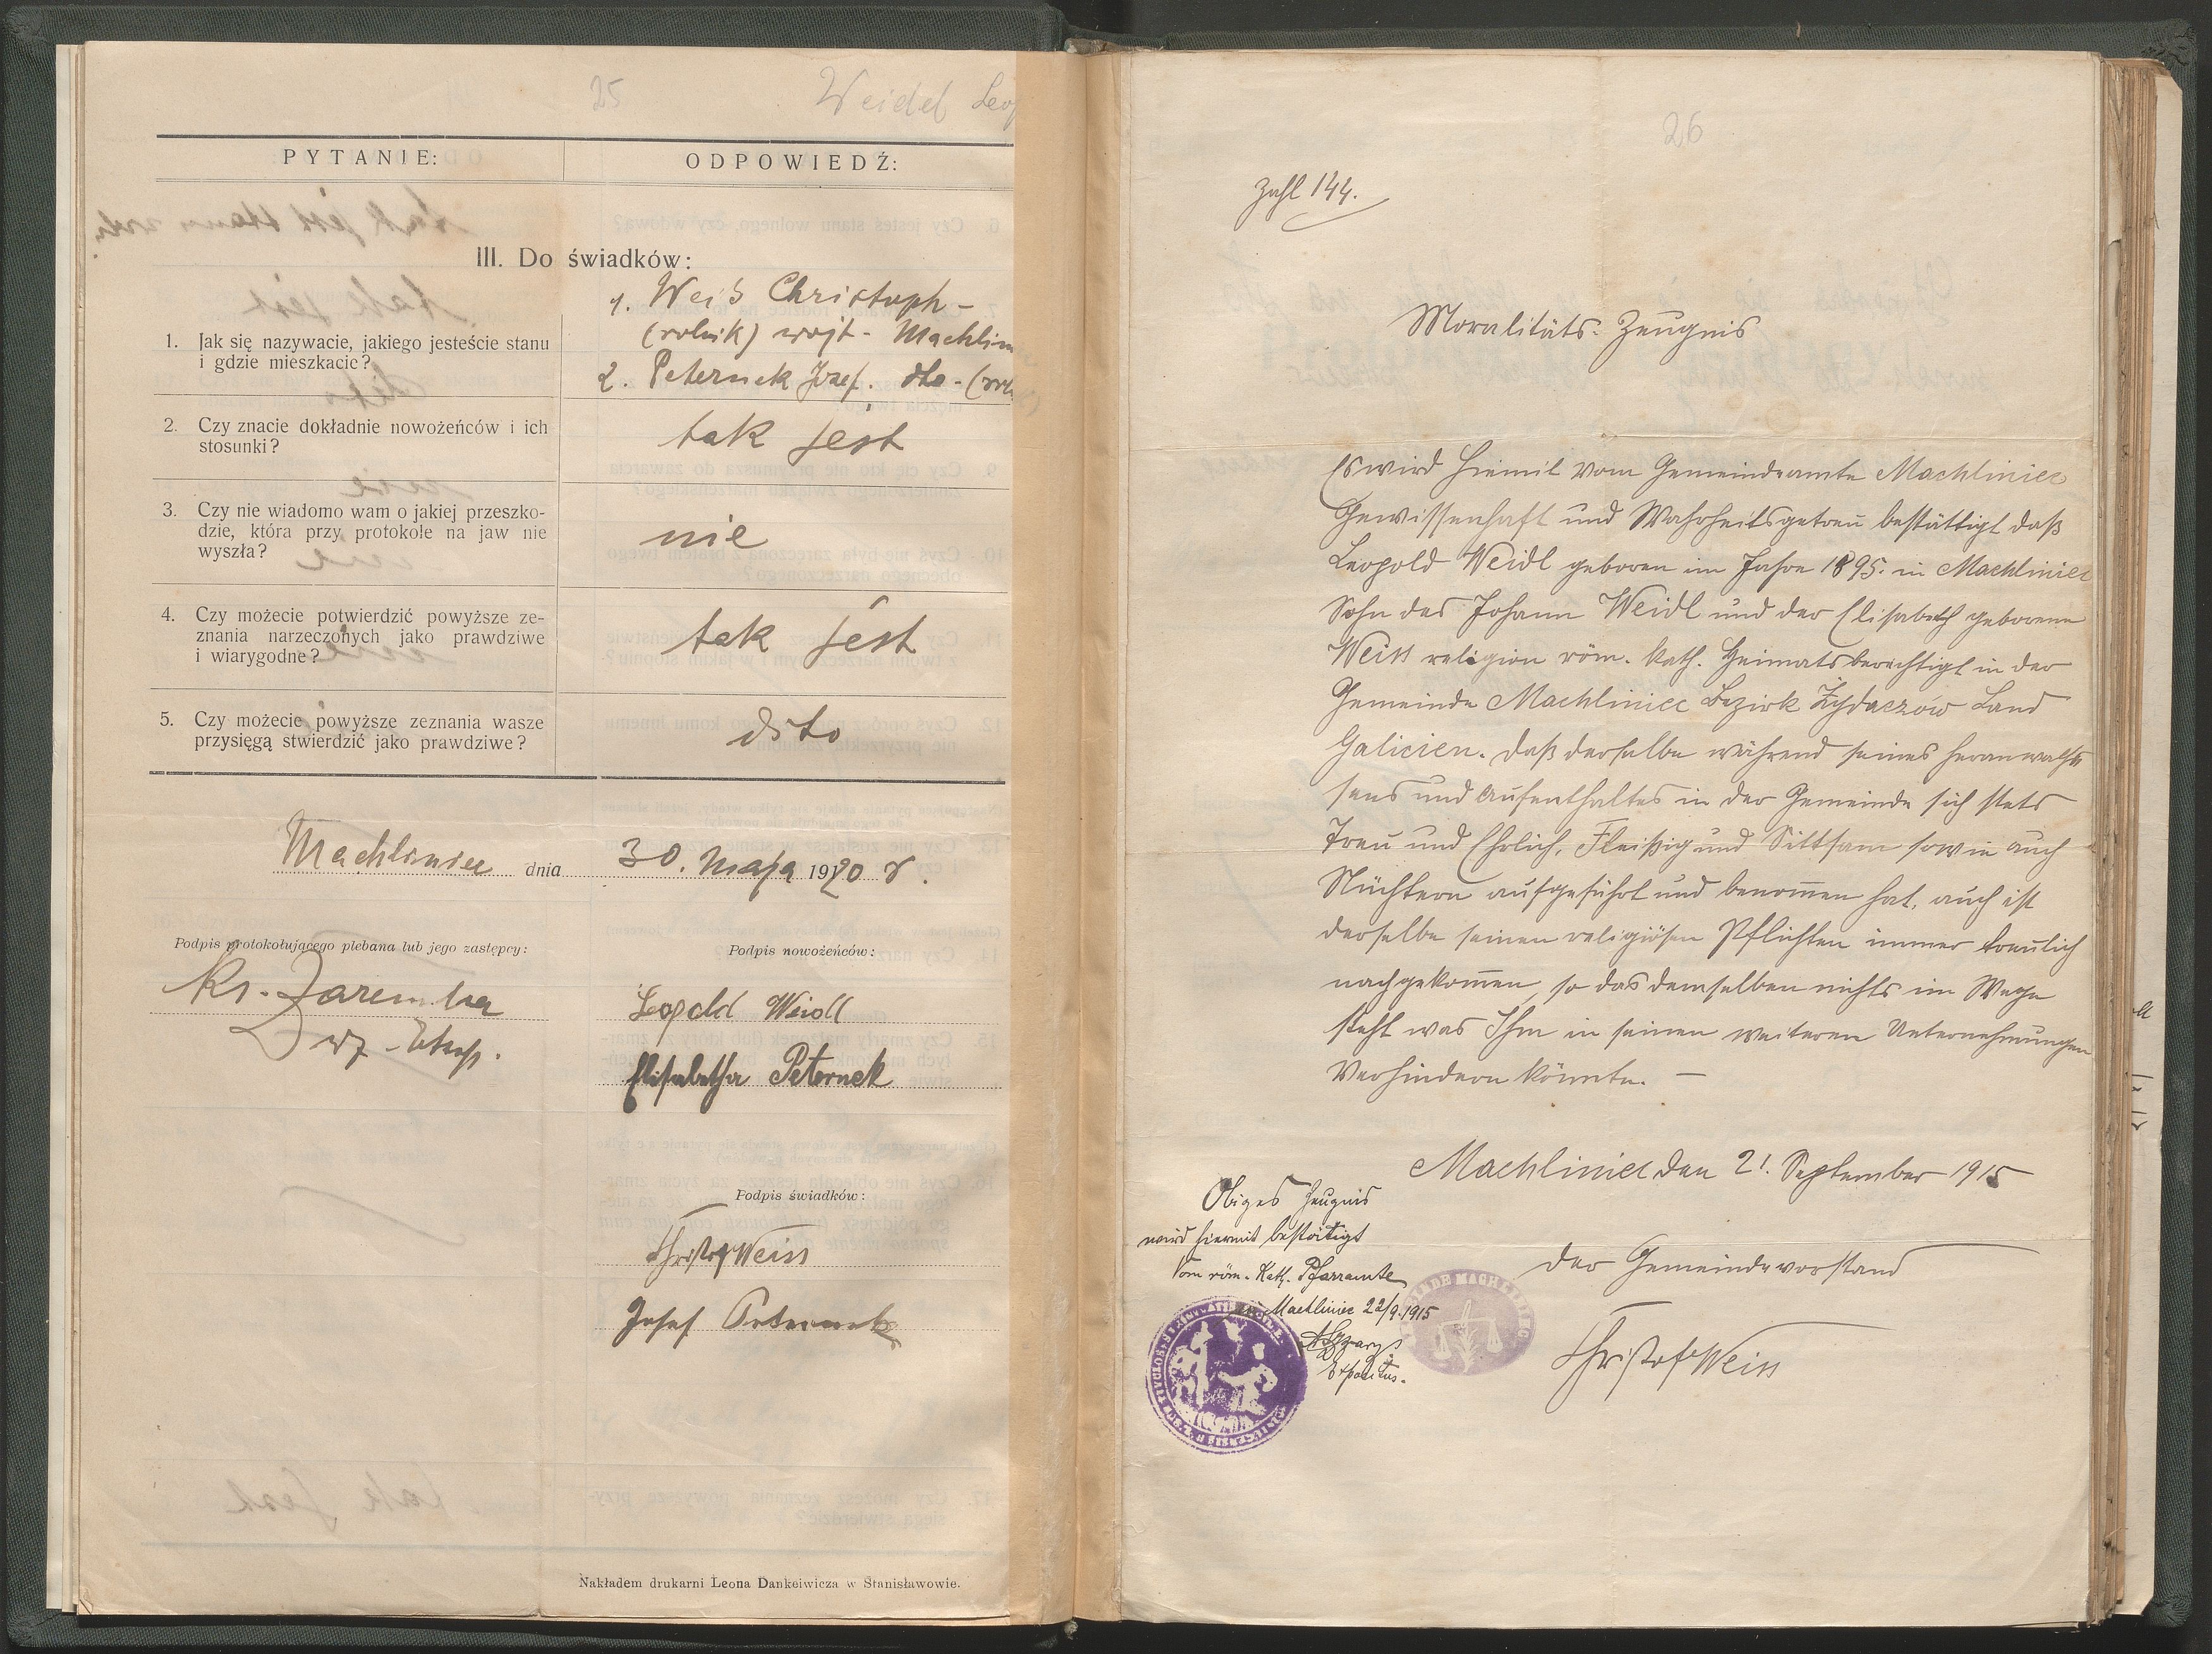 25
Weidel Leop
PYTANIE:
ODPOWIEDŹ:
III. Do świadków:
1. Jak się nazywacie, jakiego jesteście stanu
i gdzie mieszkacie?
1. Weiß Christoph -
(rolnik) wójt - Machlin
2. Peternek Józef. dto - (rol
2. Czy znacie dokładnie nowożeńców i ich
stosunki?
tak jest
3. Czy nie wiadomo wam o jakiej przeszko-
dzie, która przy protokole na jaw nie
wyszła?
nie
4. Czy możecie potwierdzić powyższe ze-
znania narzeczonych jako prawdziwe
i wiarygodne?
tak jest
5. Czy możecie powyższe zeznania wasze
przysięgą stwierdzić jako prawdziwe?
dito
Machliniec dnia 30. maja 1920 r.
Podpis protokołującego plebana lub jego zastępcy:
Ks. Zaremba
Podpis nowożeńców:
Leopold Weidl
Elisabetha Peternek
Podpis świadków:
Christof Weiss
Josef Peternek
Nakładem drukarni Leona Dankeiwicza w Stanisławowie.
26
Zahl 144.
Moralitäts-Zeugnis
Es wird hiemit vom Gemeindeamte Machliniec
Gewissenhaft und Wahrheitsgetreu bestättigt daß
Leopold Weidl geboren im Jahre 1895. in Machliniec
Sohn des Johann Weidl und der Elisabeth geborene
Weiss religion röm. kath. Heimatsberechtigt in der
Gemeinde Machliniec Bezirk Żydaczów Land
Galicien. daß derselbe während seines heranwachs
sens und Aufenthaltes in der Gemeinde sich stets
Treu und Ehrlich, Fleißig und Sittsam sowie auch
Nüchtern aufgeführt und benommen hat, auch ist
derselbe seinen religiösen Pflichten immer treulich
nachgekommen, so das demselben nichts im Wege
steht was Ihm in seinen weiteren Unternehmungen
Verhindern könnte. —
Machliniec den 21. September 1915
Obiges Zeugnis
wird hiermit bestätigt
Vom röm.-Kath. Pfarramte
Machliniec 22/9.1915
Expositus.
der Gemeindevorstand
Christof Weiss